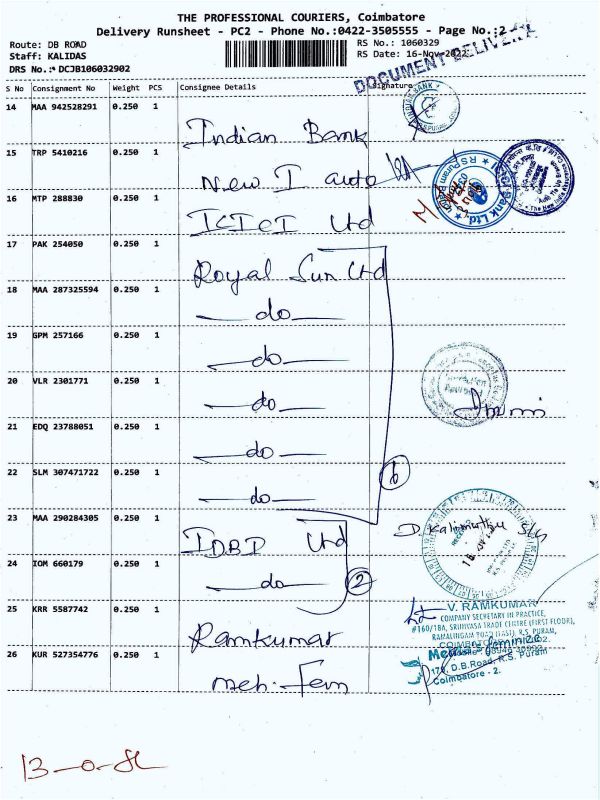 THE PROFESSIONAL COURIERS, Coimbatore
Delivery Runsheet - PC2 - Phone No.:0422-3505555 - Page No.:2
Route: DB ROAD
RS No.: 1060329
Staff: KALIDAS
RS Date: 16-Nov-2022
DRS No.: DCJB106032902
DOCUMENT DELIVERY
S No Consignment No Weight PCS Consignee Details Signature
14 MAA 942528291 0.250 1
Indian Bank
15 TRP 5410216 0.250 1
New I auto
16 MTP 288830 0.250 1
ICICI Ltd
17 PAK 254050 0.250 1
Royal Sun Ltd
18 MAA 287325594 0.250 1
do
19 GPM 257166 0.250 1
do
20 VLR 2301771 0.250 1
do
21 EDQ 23788051 0.250 1
do
22 SLM 307471722 0.250 1
do
6
23 MAA 290284305 0.250 1
IDBI Ltd
24 IOM 660179 0.250 1
do
2
25 KRR 5587742 0.250 1
Ramkumar
V. RAMKUMAR
COMPANY SECRETARY IN PRACTICE,
#160/18A, SRINIVASA TRADE CENTRE (FIRST FLOOR),
RAMALINGAM ROAD (EAST), R.S. PURAM,
26 KUR 527354776 0.250 1
D.B.Road, R.S. Puram
Coimbatore - 2.